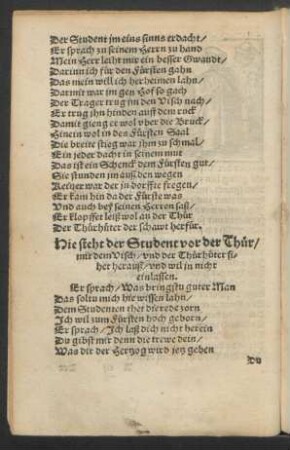 Der Student jm eins sinns erdacht/
Er sprach zu seinem Herrn zu hand
Mein Herr leiht mir ein besser Gwandt/
Darinn ich für den Fürsten gahn
Das mein will ich her heimen lahn/
Darmit war jm gen Hof so gach
Der Trager trug jm den Visch nach/
Er trug jhn hinden auff dem rock
Damit gieng er wol vber die Bruck/
Hinein wol in des Fürsten Saal
Die breite stieg war jhm zu schmal/
Ein jeder dacht in seinem mut
Das ist ein Schenck dem Fürsten gut/
Sie stunden jm auß den wegen
Keiner war der jn dorffte fregen/
Er kam hin da der Fürste was
Vnd auch bey seinen Herren saß/
Er klopffet leiß wol an der Thür
Der Thürhüter der schawt herfür.
Hie steht der Student vor der Thür/
mit dem Visch/ vnd der Thürhüter si-
het herauß/ vnd wil jn nicht
einlassen.
Er sprach/ Was bringstu guter Man
Das soltu mich hie wissen lahn/
Dem Studenten thet die rede zorn
Ich wil zum Fürsten hoch geborn/
Er sprach/ Ich laß dich nicht herein
Du gibst mir denn die trewe dein/
Was dir der Hertzog wird jetz geben
Du